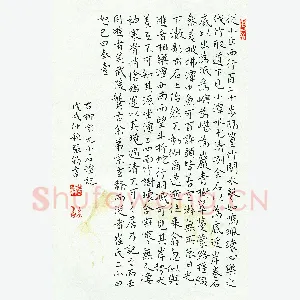 從小丘西行百二十步隔篁竹聞水聲如鳴珮環心樂之
伐竹取道下見小潭水尤清冽全石以為底近岸卷石
底以出為坻為嶼為嵁為巖青樹翠蔓蒙絡搖綴
參差披拂潭中魚可百許頭皆若空游無所依日光
下澈影布石上佁然不動俶爾遠逝往來翕忽似與
遊者相樂潭西南而望斗折蛇行明滅可見其岸勢犬牙
差互不可知其源坐潭上四面竹樹環合寂寥無人淒
神寒骨悄愴幽邃以其境過清不可久居乃記之而去
同遊者吳武陵龔古余弟宗玄隸而從者崔氏二小生
曰恕己曰奉壹
右柳宗元小石潭記
戊戌仲秋
Shufawang.CN